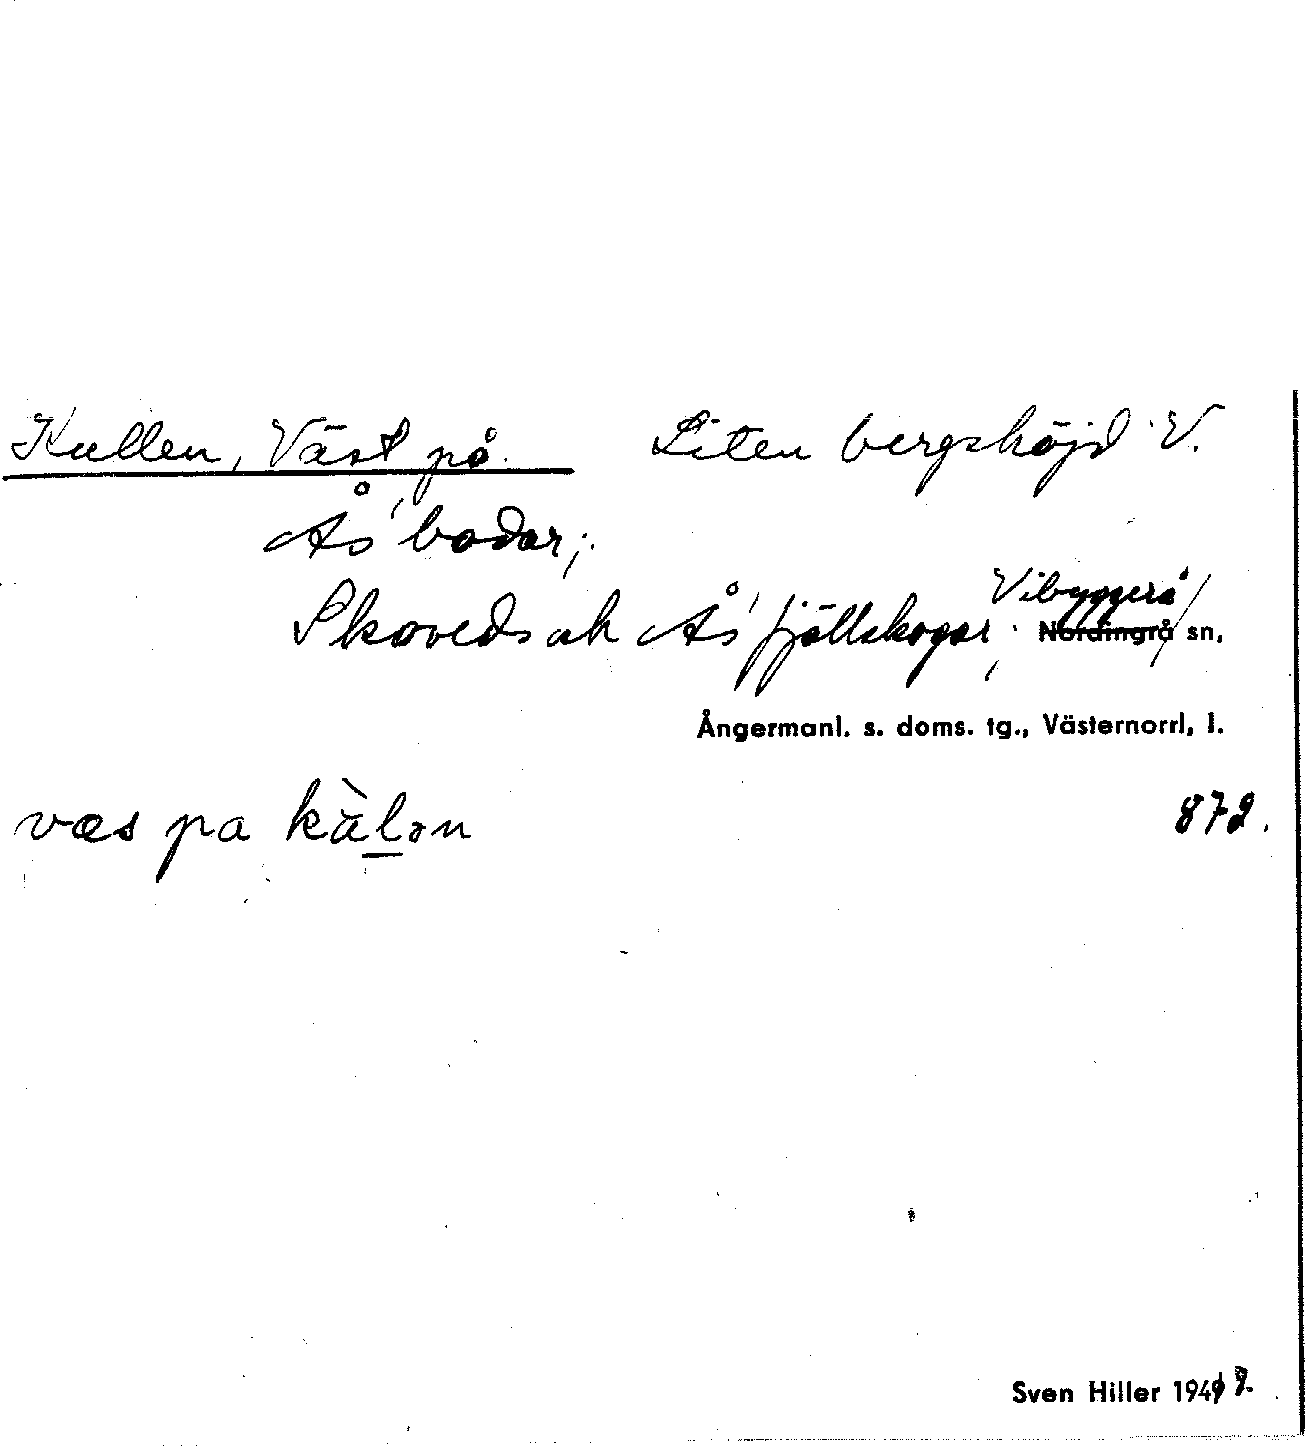 Kullen, Väst på. Liten bergshöjd V.
Ås' bodar;
Skoveds ah Ås' fjällskogar, Vibyggerå
Nordingrå sn.
Ångermanl. s. doms. tg., Västernorrl. l.
væs pa kàlən 872.
Sven Hiller 194